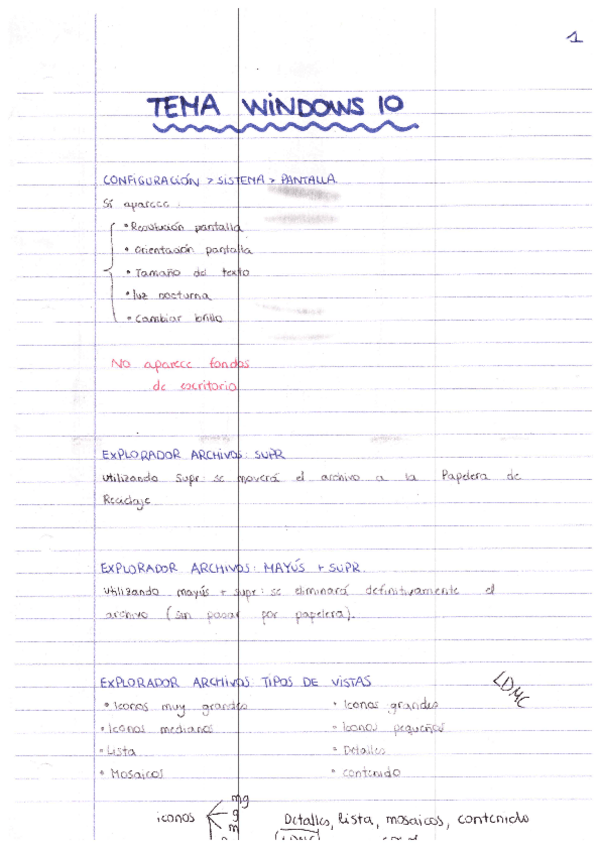 1
TEMA WINDOWS 10
CONFIGURACIÓN > SISTEMA > PANTALLA
Sí aparece:
• Resolución pantalla
• Orientación pantalla
• Tamaño del texto
• luz nocturna
• Cambiar brillo
No aparece fondos
de escritorio
EXPLORADOR ARCHIVOS: SUPR
Utilizando Supr: se moverá el archivo a la Papelera de
Reciclaje
EXPLORADOR ARCHIVOS: MAYÚS + SUPR
Utilizando mayús + supr: se eliminará definitivamente el
archivo (sin pasar por papelera).
EXPLORADOR ARCHIVOS: TIPOS DE VISTAS
LDMC
• Iconos muy grandes • Iconos grandes
• Iconos medianos • Iconos pequeños
• Lista • Detalles
• Mosaicos • Contenido
mg
iconos g Detalles, lista, mosaicos, contenido
m (LDMC)